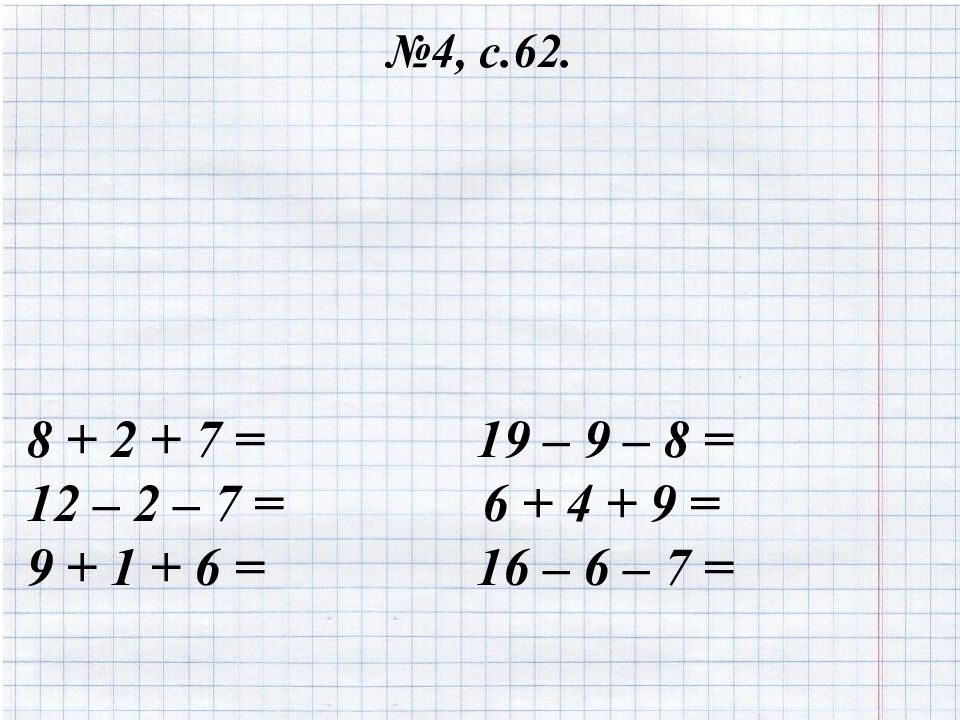 №4, с.62.
8 + 2 + 7 = 19 – 9 – 8 =
12 – 2 – 7 = 6 + 4 + 9 =
9 + 1 + 6 = 16 – 6 – 7 =